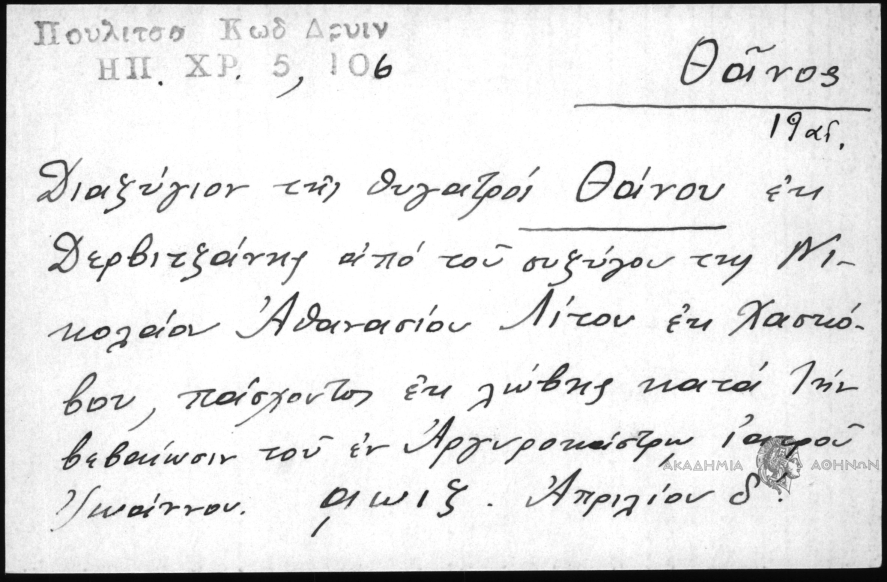 Πουλιτσα Κωδ Δρυιν
ΗΠ. ΧΡ. 5, 106
Θᾶνος
19 αἰ.
Διαζύγιον τῆς θυγατρός Θάνου ἐκ
Δερβιτζάνης ἀπό τοῦ συζύγου της Νι-
κολάου Ἀθανασίου Λίτου ἐκ Χασκό-
βου, πάσχοντος ἐκ λώβης κατά τήν
βεβαίωσιν τοῦ ἐν Ἀργυροκάστρῳ ἰατροῦ
Ἰωάννου. ͵αωιζ. Ἀπριλίου δ'.
ΑΚΑΔΗΜΙΑ ΑΘΗΝΩΝ